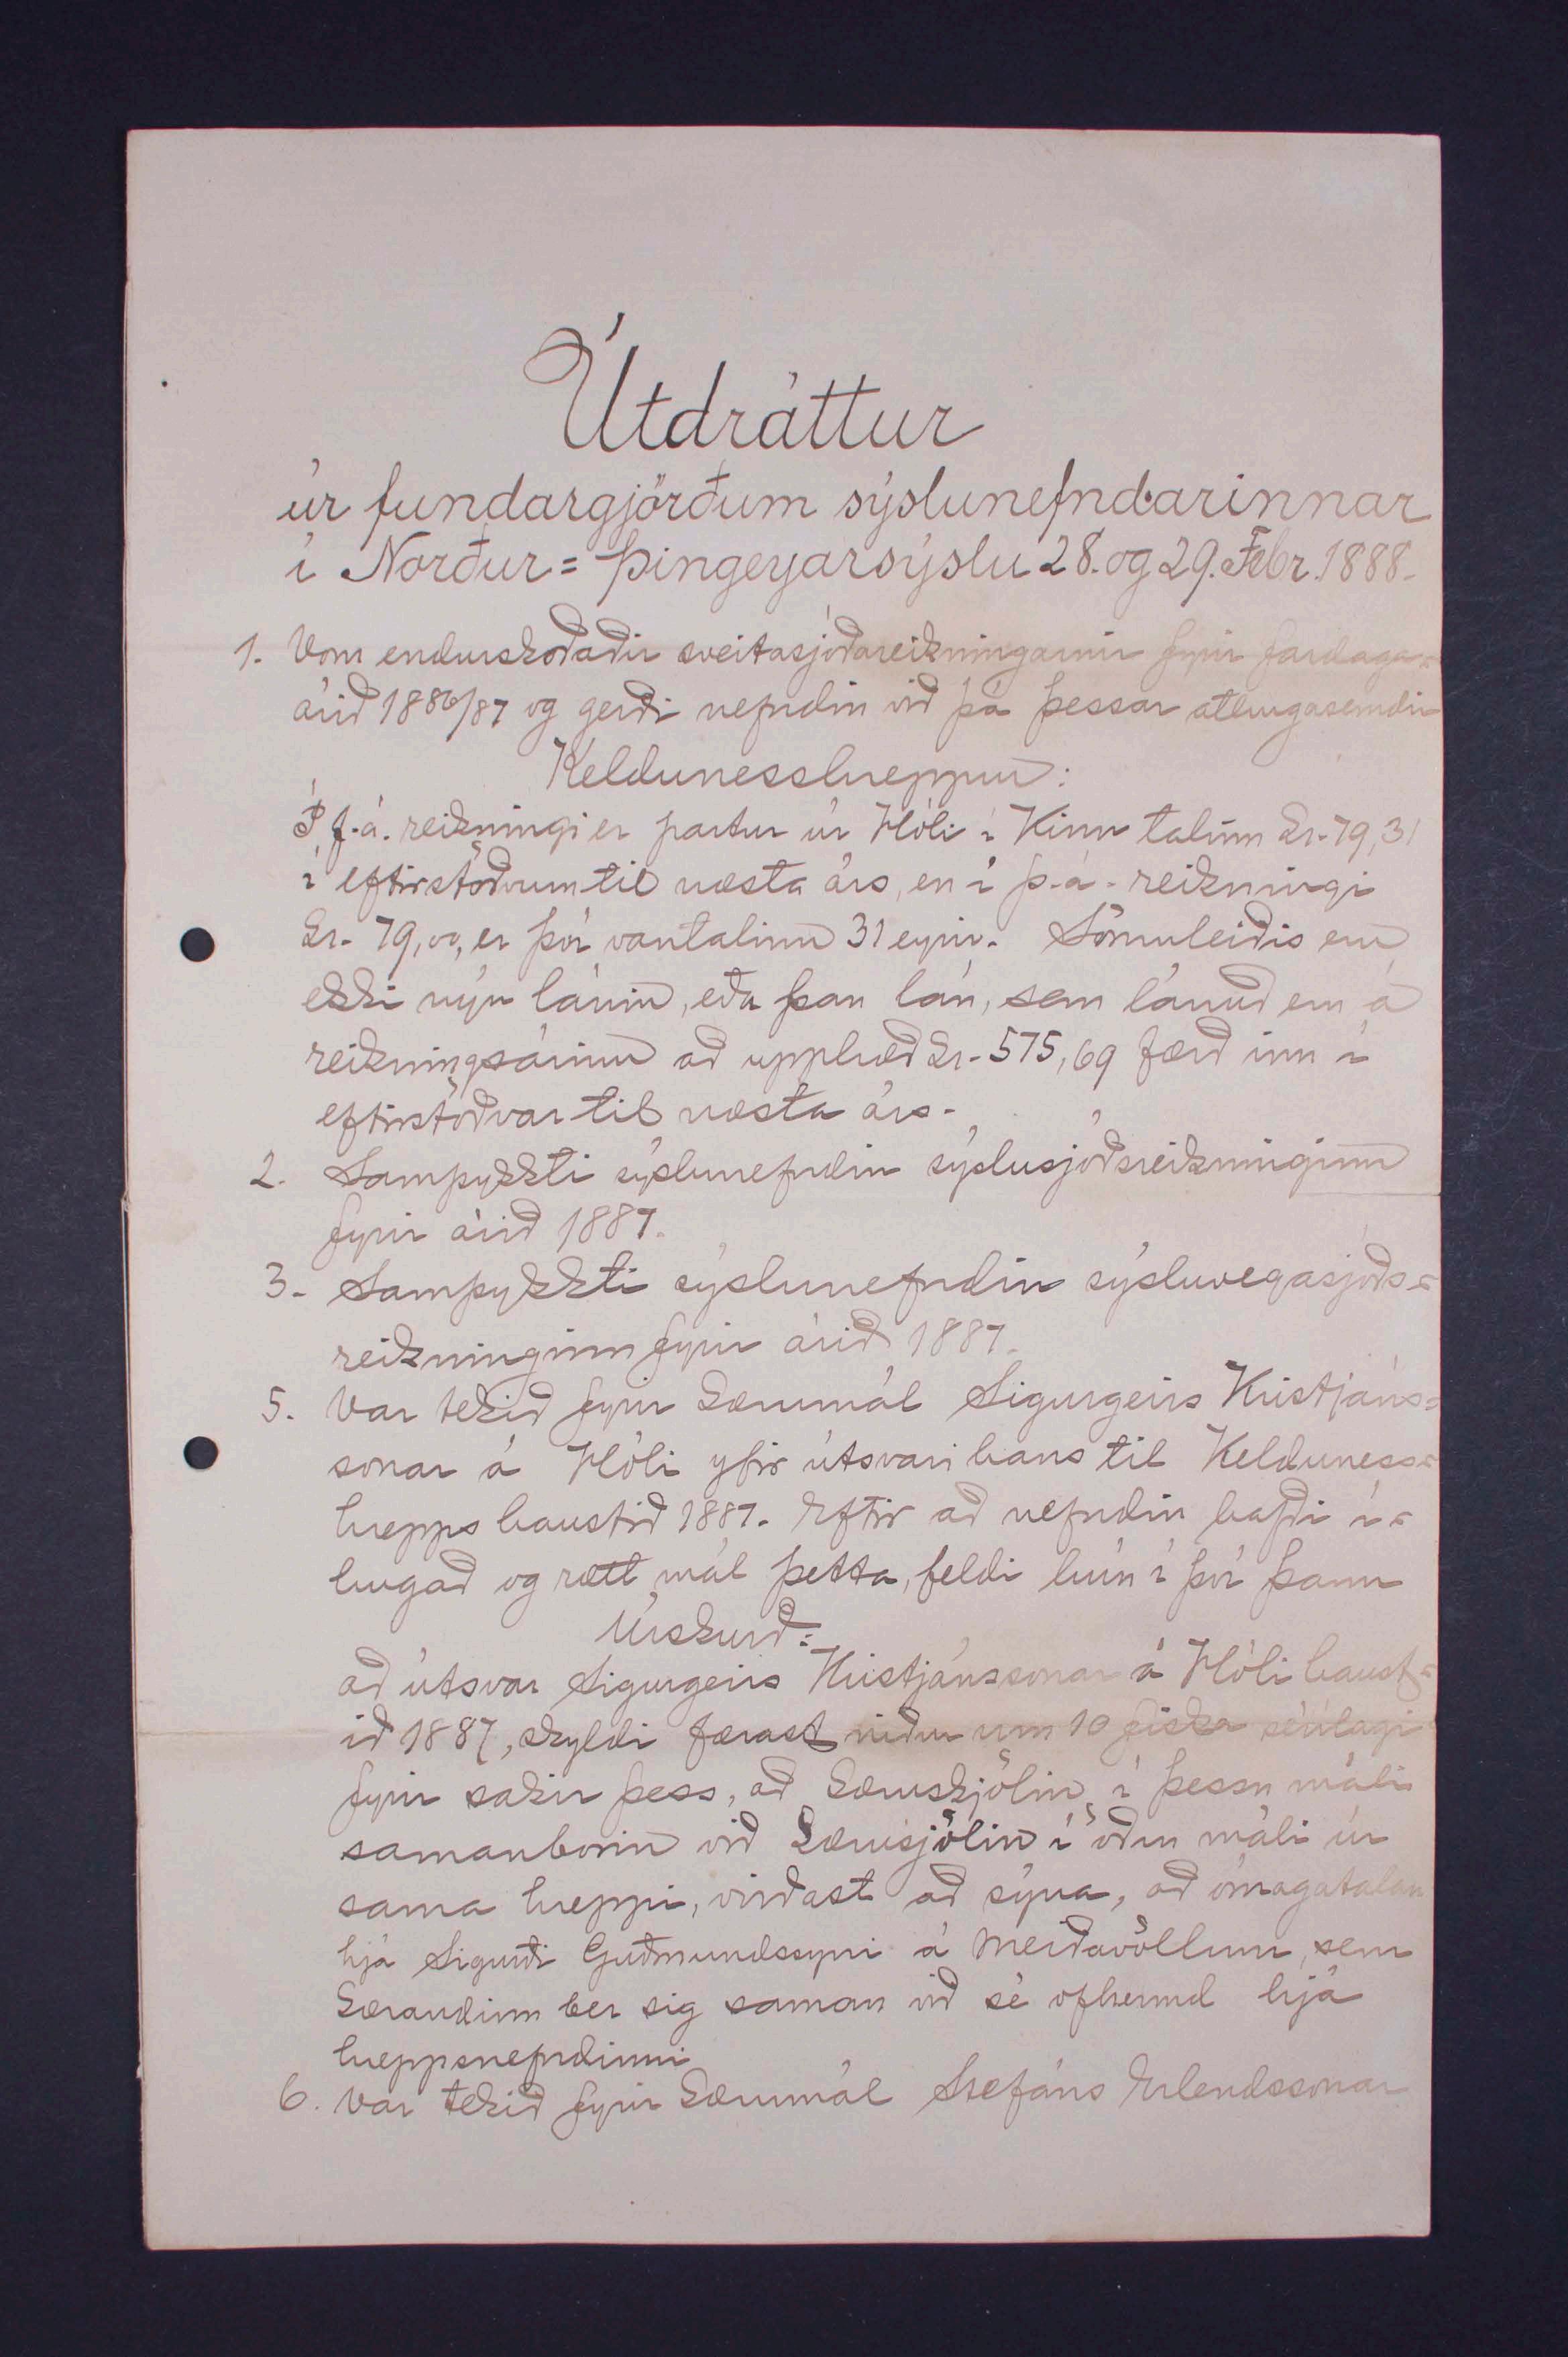 Útdráttur
úr fundargjörðum sýslunefndarinnar
í Norður=Þingeyarsýslu 28. og 29. Febr. 1888.
1. Voru endurskoðaðir sveitasjóðareikningarnir fyrir fardaga=
árið 1886/87 og gerði nefndin við þá þessar athugasemdir
Keldunesshreppur:
Í f. á. reikningi er partur úr Hóli í Kinn talinn kr. 79,31
í eftirstöðvum til næsta árs, en í þ. á. reikningi
kr. 79,00, er því vantalinn 31 eyrir. Sömuleiðis eru
ekki nýu lánin, eða þau lán, sem lánuð eru á
reikningsárinu að upphæð kr. 575,69 færð inn í
eftirstöðvar til næsta árs.
2. Samþykkti sýslunefndin sýslusjóðsreikninginn
fyrir árið 1887.
3. Samþykkti sýslunefndin sýsluvegasjóðs=
reikninginn fyrir árið 1887.
5. Var tekið fyrir kærumál Sigurgeirs Kristjáns=
sonar á Hóli yfir útsvari hans til Kelduness=
hrepps haustið 1887. Eftir að nefndin hafði í=
hugað og rætt mál þetta, feldi hún í því þann
Úrskurð:
að útsvar Sigurgeirs Kristjánssonar á Hóli haust=
ið 1887, skyldi færast niður um 10 fiska sérílagi
fyrir sakir þess, að kæruskjölin í þessu máli
samanborin við kærusjölin í öðru máli úr
sama hreppi, virðast að sýna, að ómagatalan
hjá Sigurði Guðmundssyni á Meiðavöllum, sem
kærandinn ber sig saman við sé ofhermd hjá
hreppsnefndinni
6. Var tekið fyrir kærumál Stefáns Erlendssonar